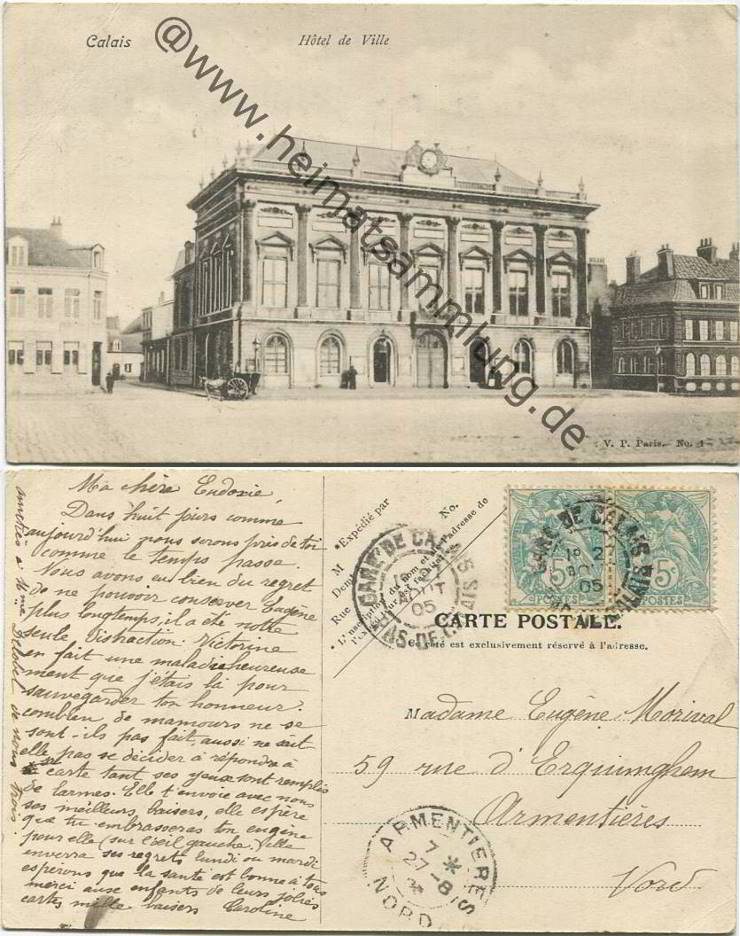 Calais Hôtel de Ville
@www.heimatsammlung.de
V. P. Paris. - No. 4
Ma chère Eudoxie,
Dans huit jours comme
aujourd'hui nous serons près de toi
comme le temps passe.
Nous avons eu bien du regret
de ne pouvoir conserver Eugène
plus longtemps, il a été notre
seule distraction. Victorine
en fait une maladie heureuse
ment que j'étais là pour
sauvegarder ton honneur.
combien de mamours ne se
sont-ils pas fait, aussi ne sait
elle pas se décider à répondre à
sa carte tant ses yeux sont remplis
de larmes. Elle t'envoie avec nous
ses meilleurs baisers, elle espère
que tu embrasseras ton eugène
pour elle (sur l'œil gauche). Elle
enverra ses regrets lundi ou mardi
espérons que la santé est bonne à tous
merci aux enfants de leurs jolies
cartes mille baisers Caroline
amitiés à Mme de nous trois
*Expédié par
No.
M
Rue
*L'expression du nom et de l'adresse de
GARE DE CALAIS
PAS-DE-CALAIS
AOUT
05
GARE DE CALAIS
27
AOUT
05
5c
POSTES
5c
POSTES
CARTE POSTALE.
Ce côté est exclusivement réservé à l'adresse.
Madame Eugène Morival
59 rue d'Erquinghem
Armentières
Nord
ARMENTIERES
7 *
27 -8
NORD